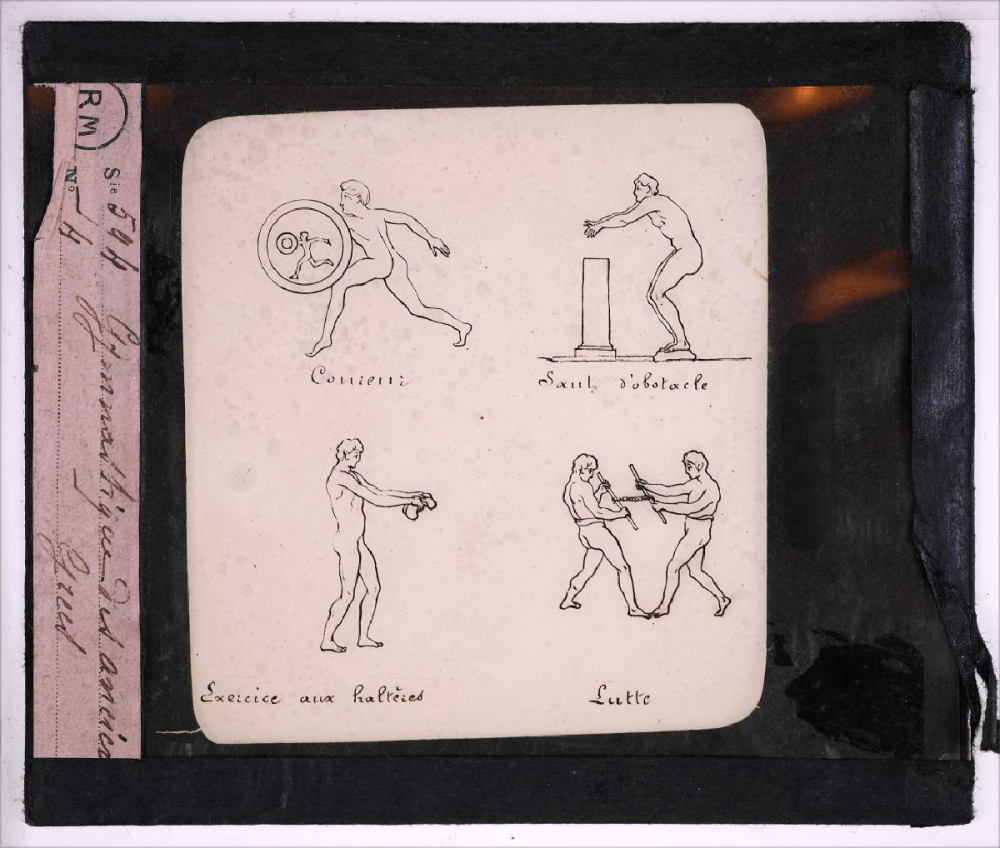 RM
Sie 594 Gymnastique des ancien
No 4 Grecs
Coureur
Saut d'obstacle
Exercice aux haltères
Lutte